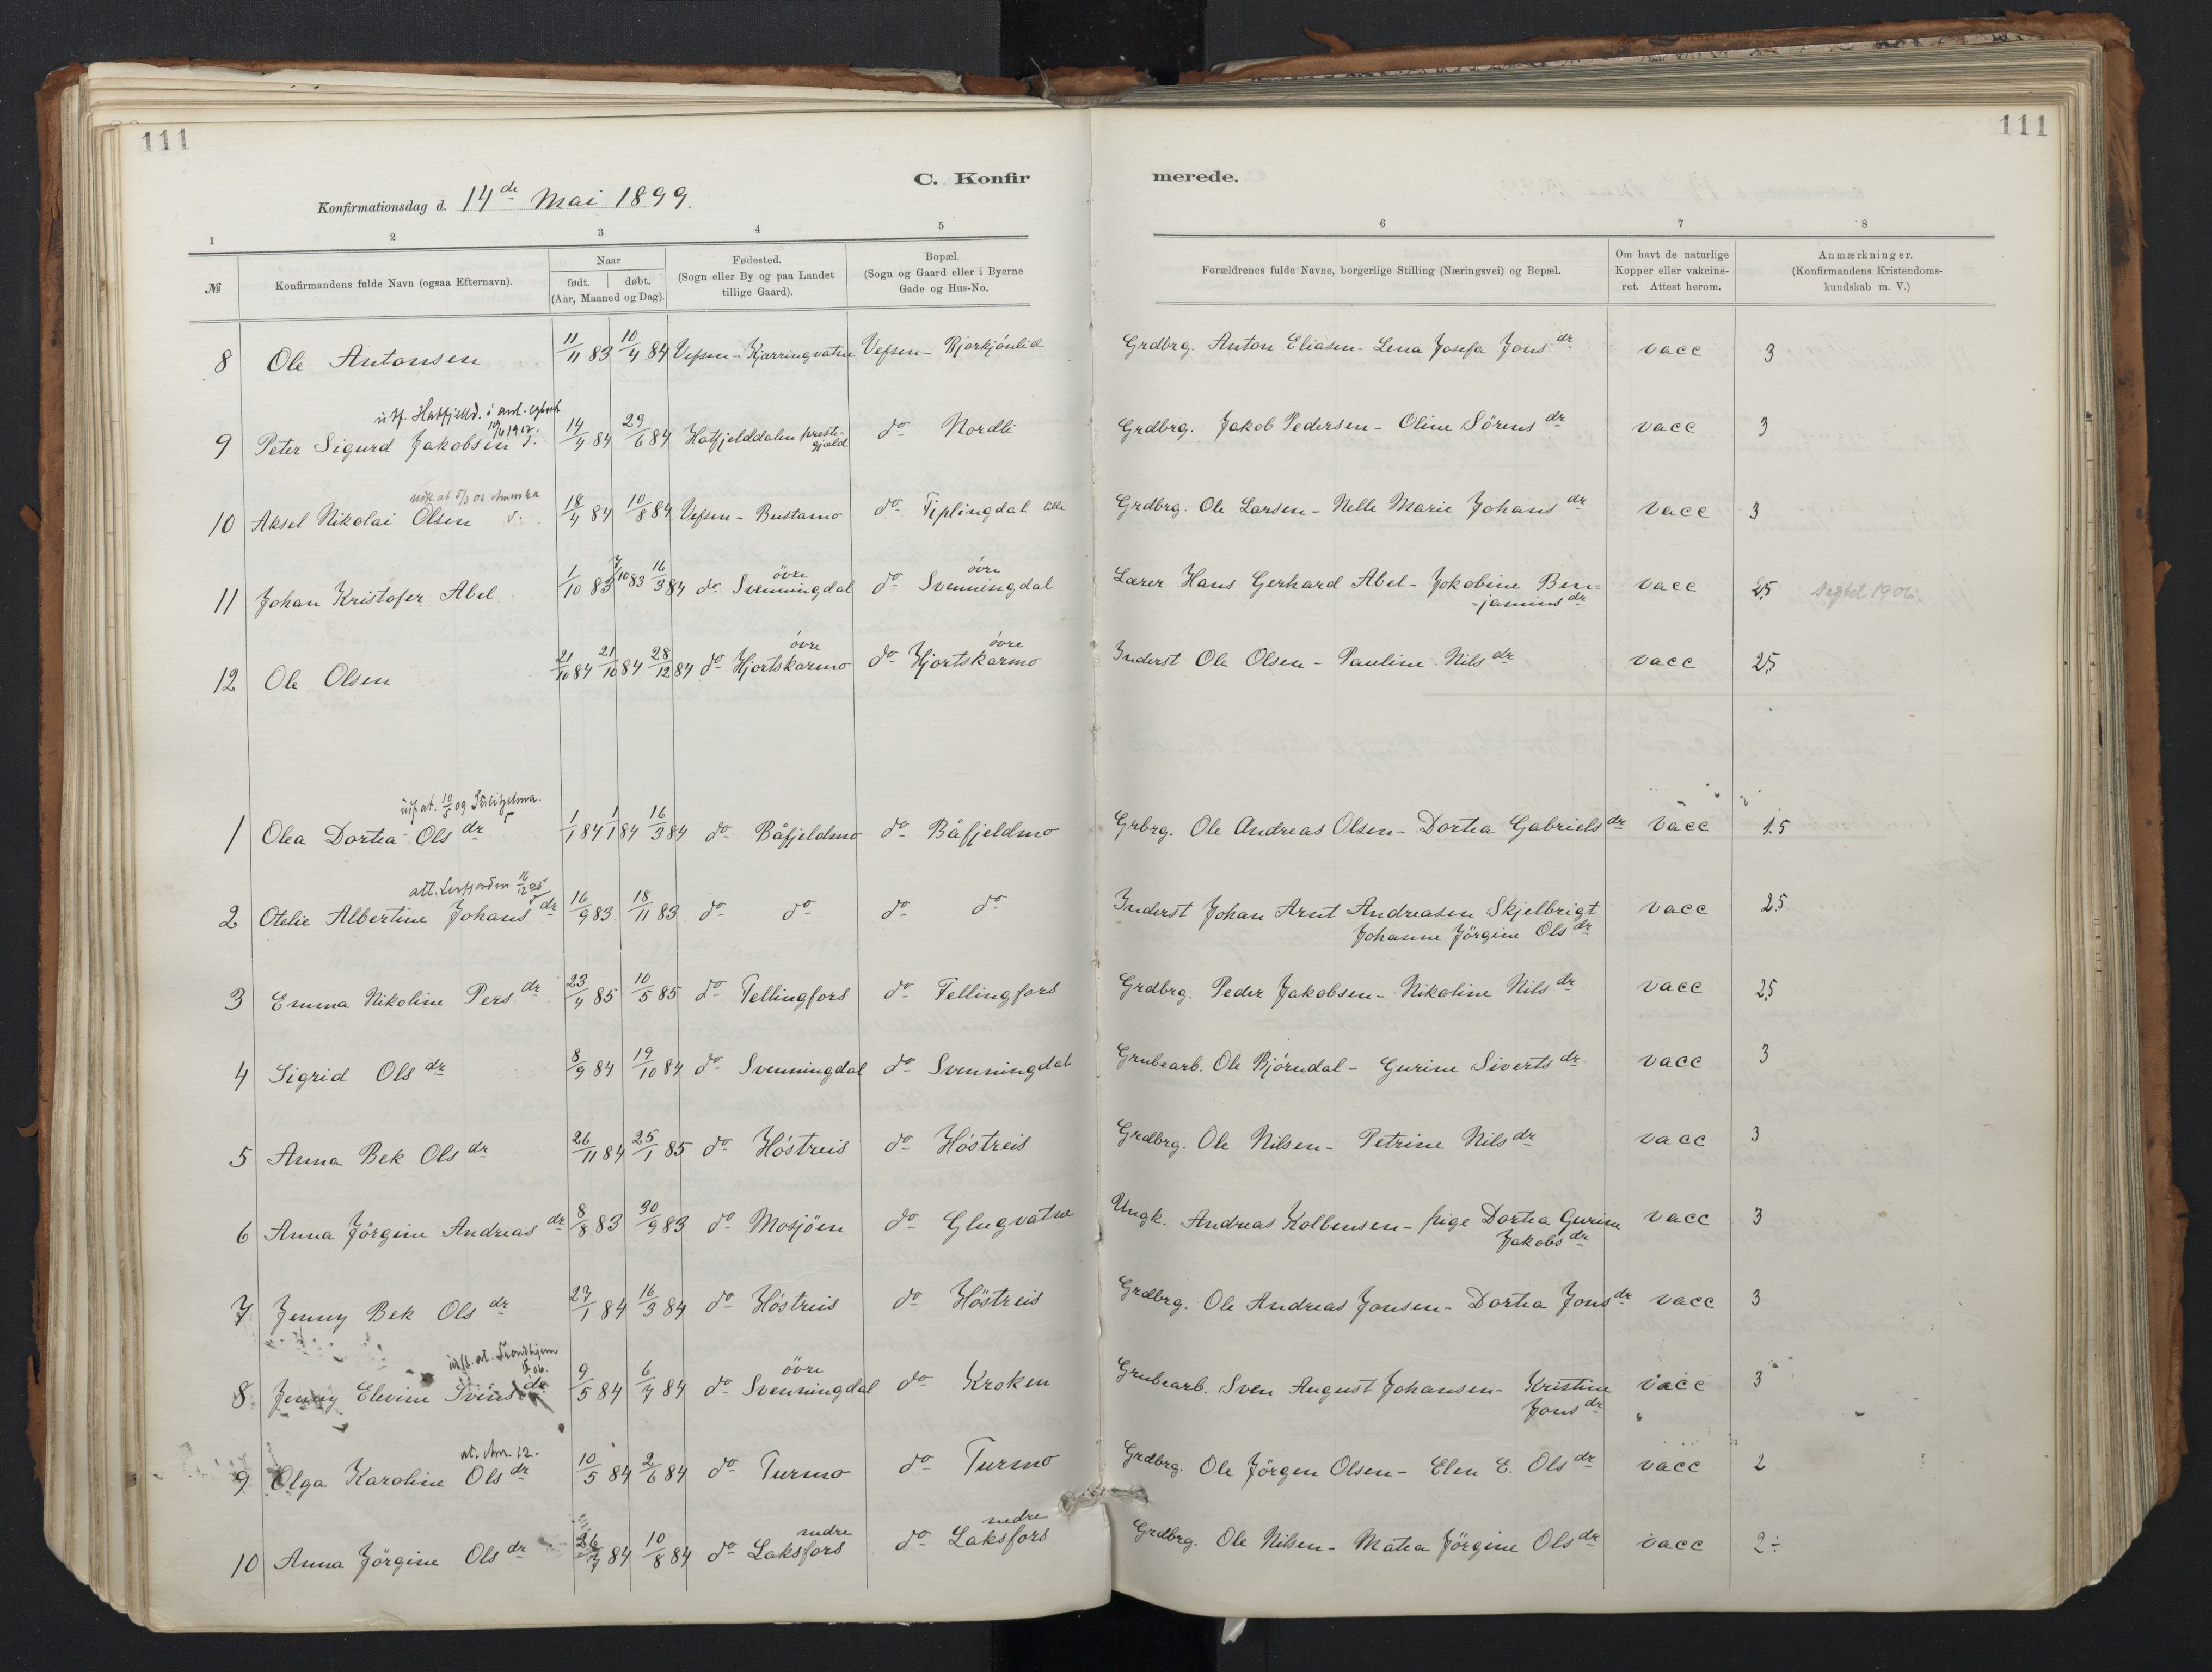 111
111
C. Konfir
merede.
Konfirmationsdag d. 14de Mai 1899.
1 2 3 4 5 6 7 8
№ Konfirmandens fulde Navn (ogsaa Efternavn). Naar født. døbt. (Aar, Maaned og Dag). Fødested. (Sogn eller By og paa Landet tillige Gaard). Bopæl. (Sogn og Gaard eller i Byerne Gade og Hus-No. Forældrenes fulde Navne, borgerlige Stilling (Næringsvei) og Bopæl. Om havt de naturlige Kopper eller vakcineret. Attest herom. Anmærkninger. (Konfirmandens Kristendomskundskab m. V.)
8 Ole Antonsen 11/11 83 10/4 84 Vefsen - Kjærringvatne Vefsen - Bjorkjönlid Grdbrg. Anton Eliasen - Lena Josefa Jonsdr vacc 3
9 Peter Sigurd Jakobsen 14/4 84 29/6 84 Hatfjelddalen prestegjæld do Nordli Grdbrg. Jakob Pedersen - Oline Sörensdr vacc 3
10 Aksel Nikolai Olsen 18/4 84 10/8 84 Vefsen - Bustamo do Tiplingdal lille Grdbrg. Ole Larsen - Nelle Marie Johansdr vacc 3
11 Johan Kristofer Abel 1/10 83 7/10 83 16/3 84 do Svenningdal övre do Svenningdal övre Lærer Hans Gerhard Abel - Jakobine Benjaminsdr vacc 2,5
12 Ole Olsen 21/10 84 21/10 84 28/12 84 do Hjortskarmo övre do Hjortskarmo övre Inderst Ole Olsen - Pauline Nilsdr vacc 2,5
1 Olea Dortea Olsdr 1/1 84 1/1 84 16/3 84 do Båfjeldmo do Båfjeldmo Grbrg. Ole Andreas Olsen - Dortea Gabrielsdr vacc 1.5
2 Otelie Albertine Johansdr 16/9 83 18/11 83 do do do do Inderst Johan Arnt Andreasen Skjelbrigt
Johanne Jörgine Olsdr vacc 2.5
3 Emma Nikoline Persdr 23/4 85 10/5 85 do Fellingfors do Fellingfors Grdbrg. Peder Jakobsen - Nikoline Nilsdr vacc 2,5
4 Sigrid Olsdr 8/9 84 19/10 84 do Svenningdal do Svenningdal Grubearb. Ole Bjørndal - Gurine Sivertsdr vacc 3
5 Anna Bek Olsdr 26/11 84 25/1 85 do Höstreis do Höstreis Grdbrg. Ole Nilsen - Petrine Nilsdr vacc 3
6 Anna Jörgine Andreasdr 8/8 83 30/9 83 do Mosjöen do Glugvatne Ungk. Andreas Kolbensen - pige Dortea Gurine
Jakobsdr vacc 3
7 Jenny Bek Olsdr 27/1 84 16/3 84 do Höstreis do Höstreis Grdbrg. Ole Andreas Jonsen - Dortea Jonsdr vacc 3
8 Jenny Elevine Svensdr 9/5 84 6/7 84 do Svenningdal övre do Kroken Grubearb. Sven August Johansen - Kristine
Jonsdr vacc 3
at. Am. 12.
9 Olga Karoline Olsdr 10/5 84 2/6 84 do Turmo do Turmo Grdbrg. Ole Jörgen Olsen - Elen E. Olsdr vacc 2
10 Anna Jörgine Olsdr 26/7 84 10/8 84 do Laksfors nedre do Laksfors nedre Grdbrg. Ole Nilsen - Matea Jörgine Olsdr vacc 2÷